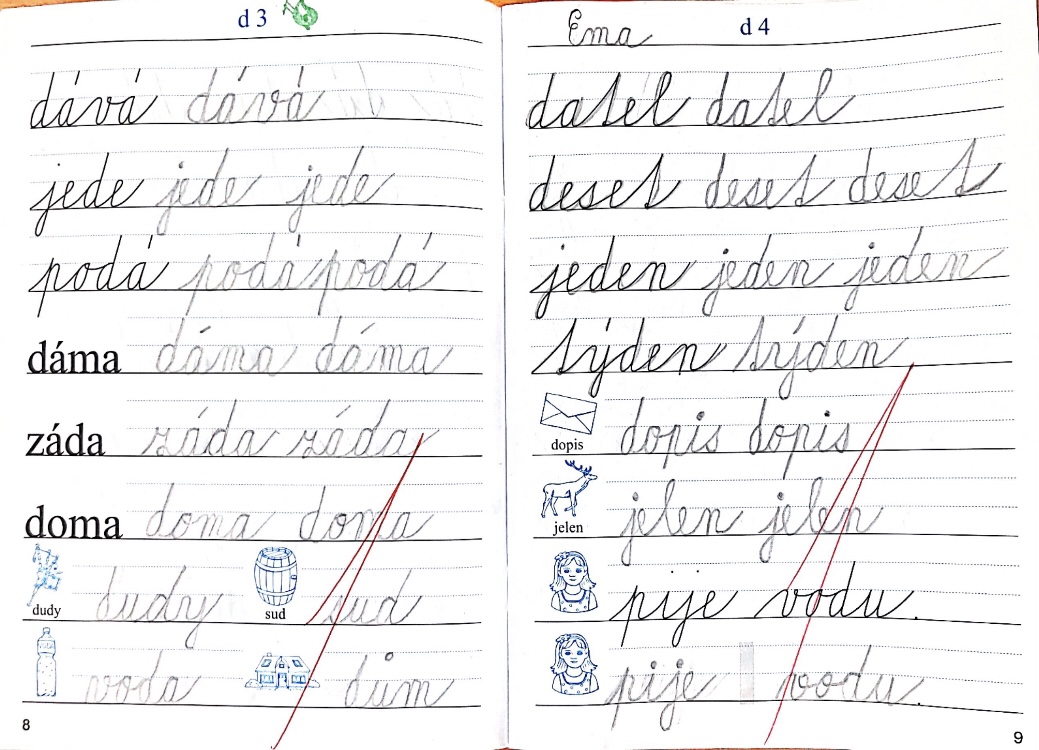 d 3
dává dává
jede jede jede
podá podá podá
dáma dáma dáma
záda záda záda
doma doma doma
dudy dudy sud sud
voda dům
8
Ema d 4
datel datel
deset deset deset
jeden jeden jeden
týden týden
dopis dopis dopis
jelen jelen jelen
pije vodu.
pije vodu.
9